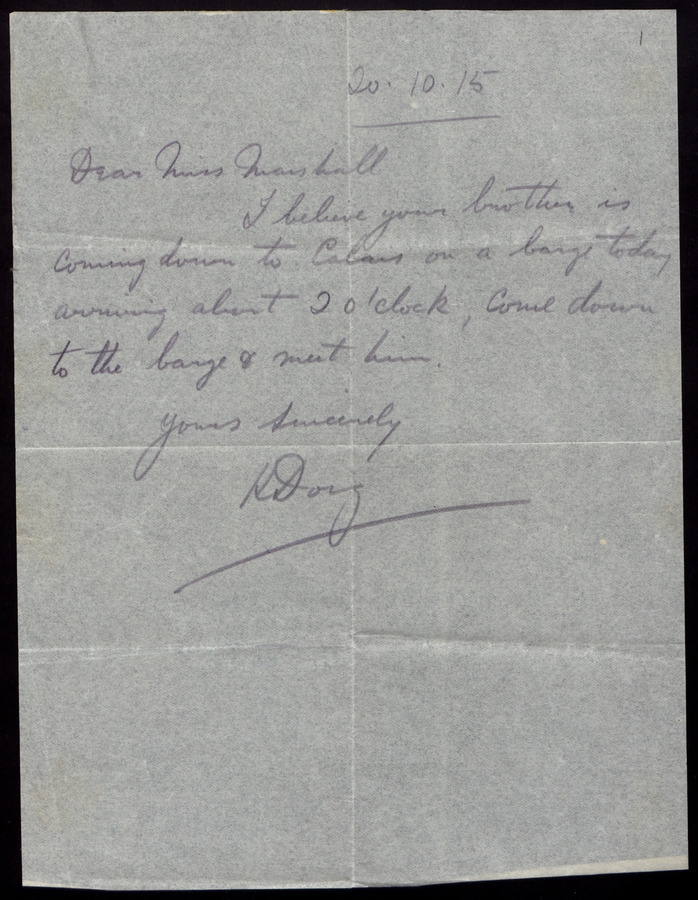 1
20.10.15
Dear Miss Marshall
I believe your brother is
coming down to Calais on a barge today
arriving about 2 o'clock, Come down
to the barge & meet him.
Yours sincerely
K Doig